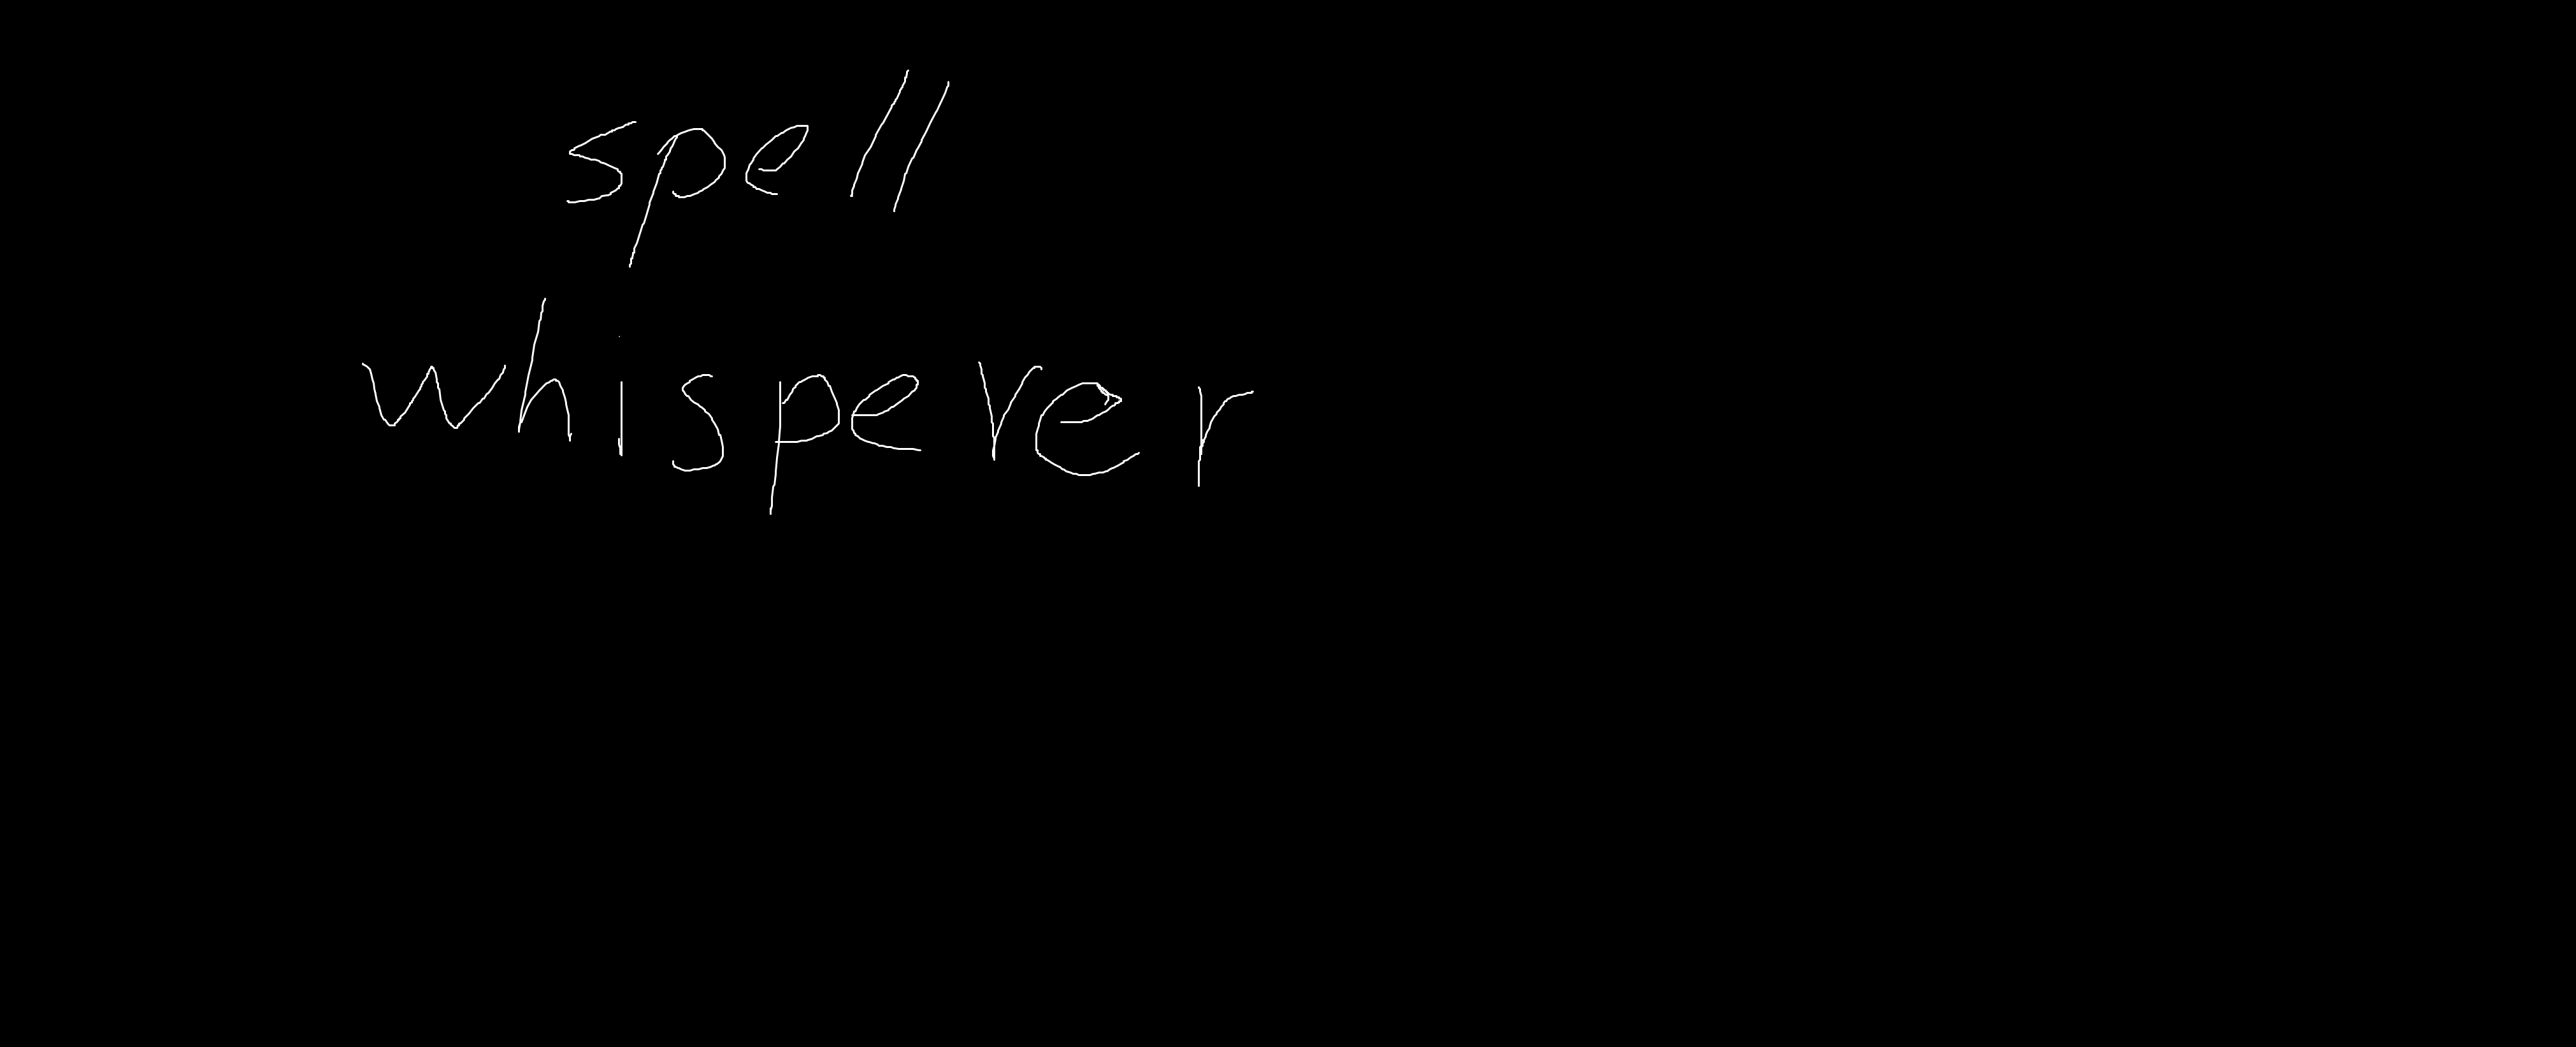 spell
whisperer